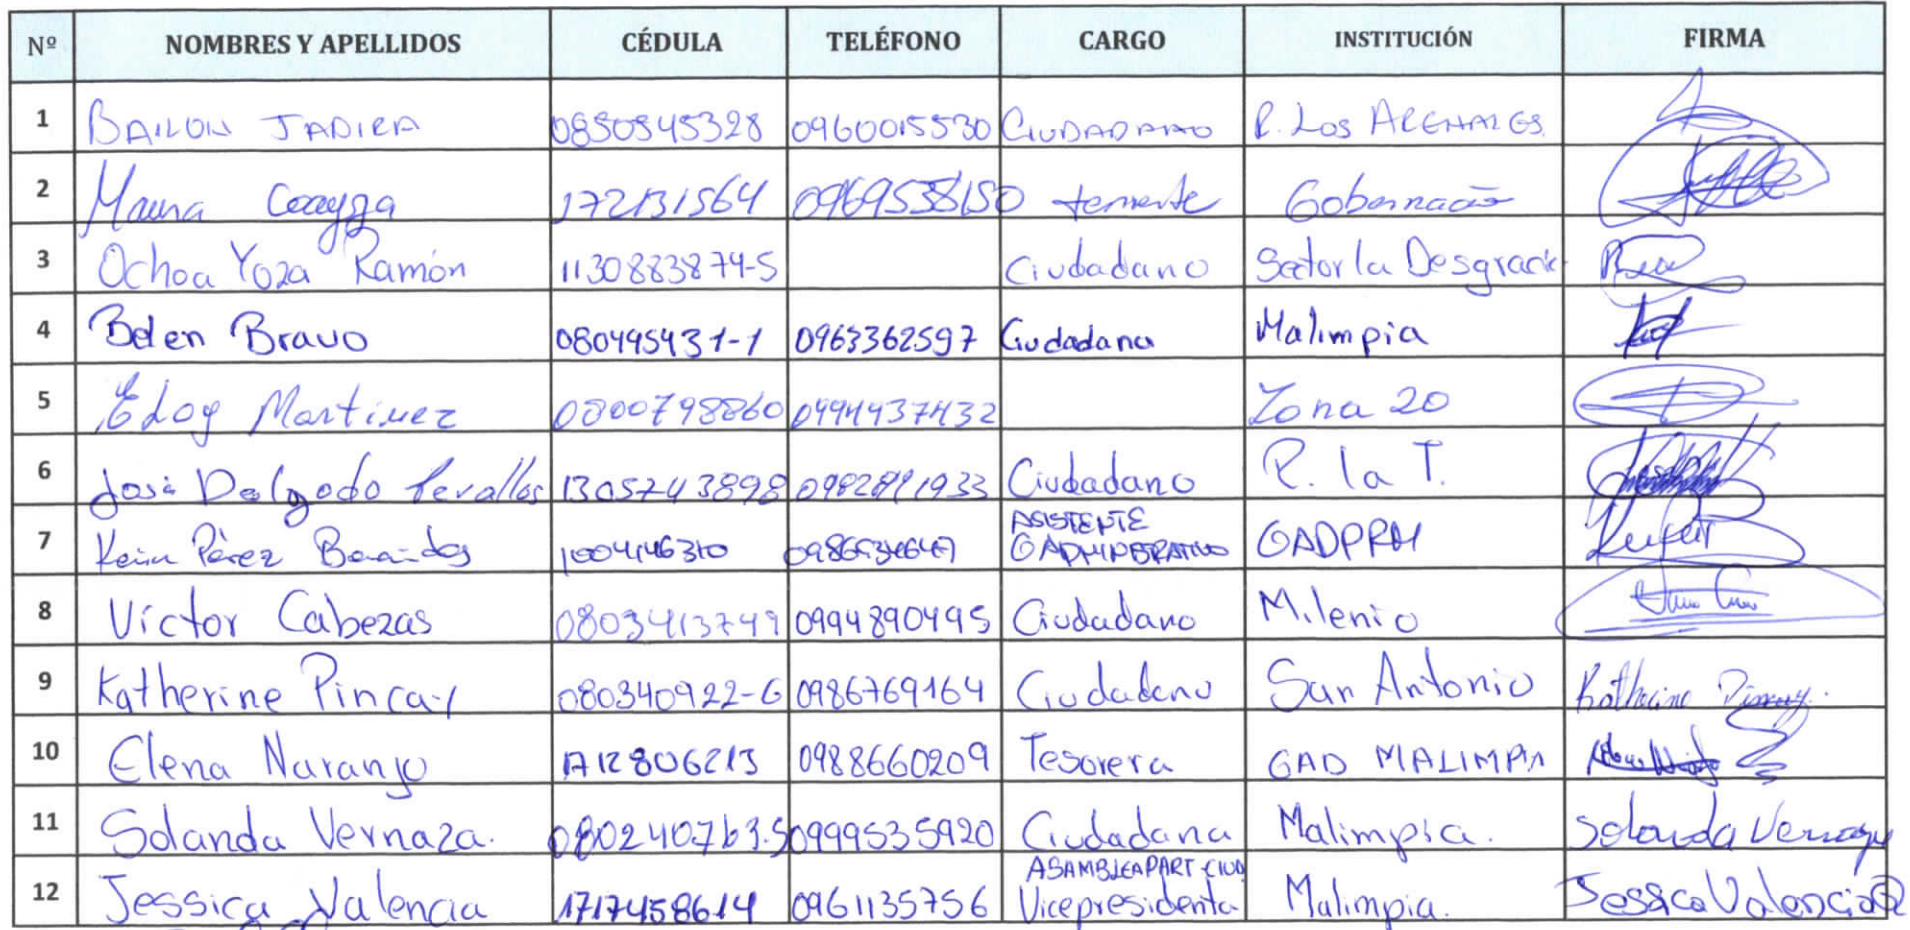 Nº NOMBRES Y APELLIDOS CÉDULA TELÉFONO CARGO INSTITUCIÓN FIRMA
1 BAILON JADIRA 0850545328 0960015530 CIUDADANO R. Los ARENALES
2 172131564 0969538150 teniente Gobernación
3 Ochoa Yoza Ramón 1130883874-5 Ciudadano Sector la Desgracia
4 Belen Bravo 080495431-1 0963362597 Ciudadana Malimpia
5 Eloy Martinez 0800798860 0994937432 Zona 20
6 José Delgado Cevallos 1305743898 0982891933 Ciudadano R. la T.
7 Pérez 1004146310 ASISTENTE ADMINISTRATIVO GADPRM
8 Víctor Cabezas 0803413749 0994890495 Ciudadano Milenio
9 Katherine Pincay 080340922-6 0986769164 Ciudadano San Antonio Katherine Pincay.
10 Elena Naranjo 1712806213 0988660209 Tesorera GAD MALIMPIA
11 Solanda Vernaza. 080240763-5 0999535920 Ciudadana Malimpia. Solanda Vernaza
12 Jessica Valencia 1717458614 0961135756 ASAMBLEA PART CIUD Vicepresidenta Malimpia. Jessica Valencia